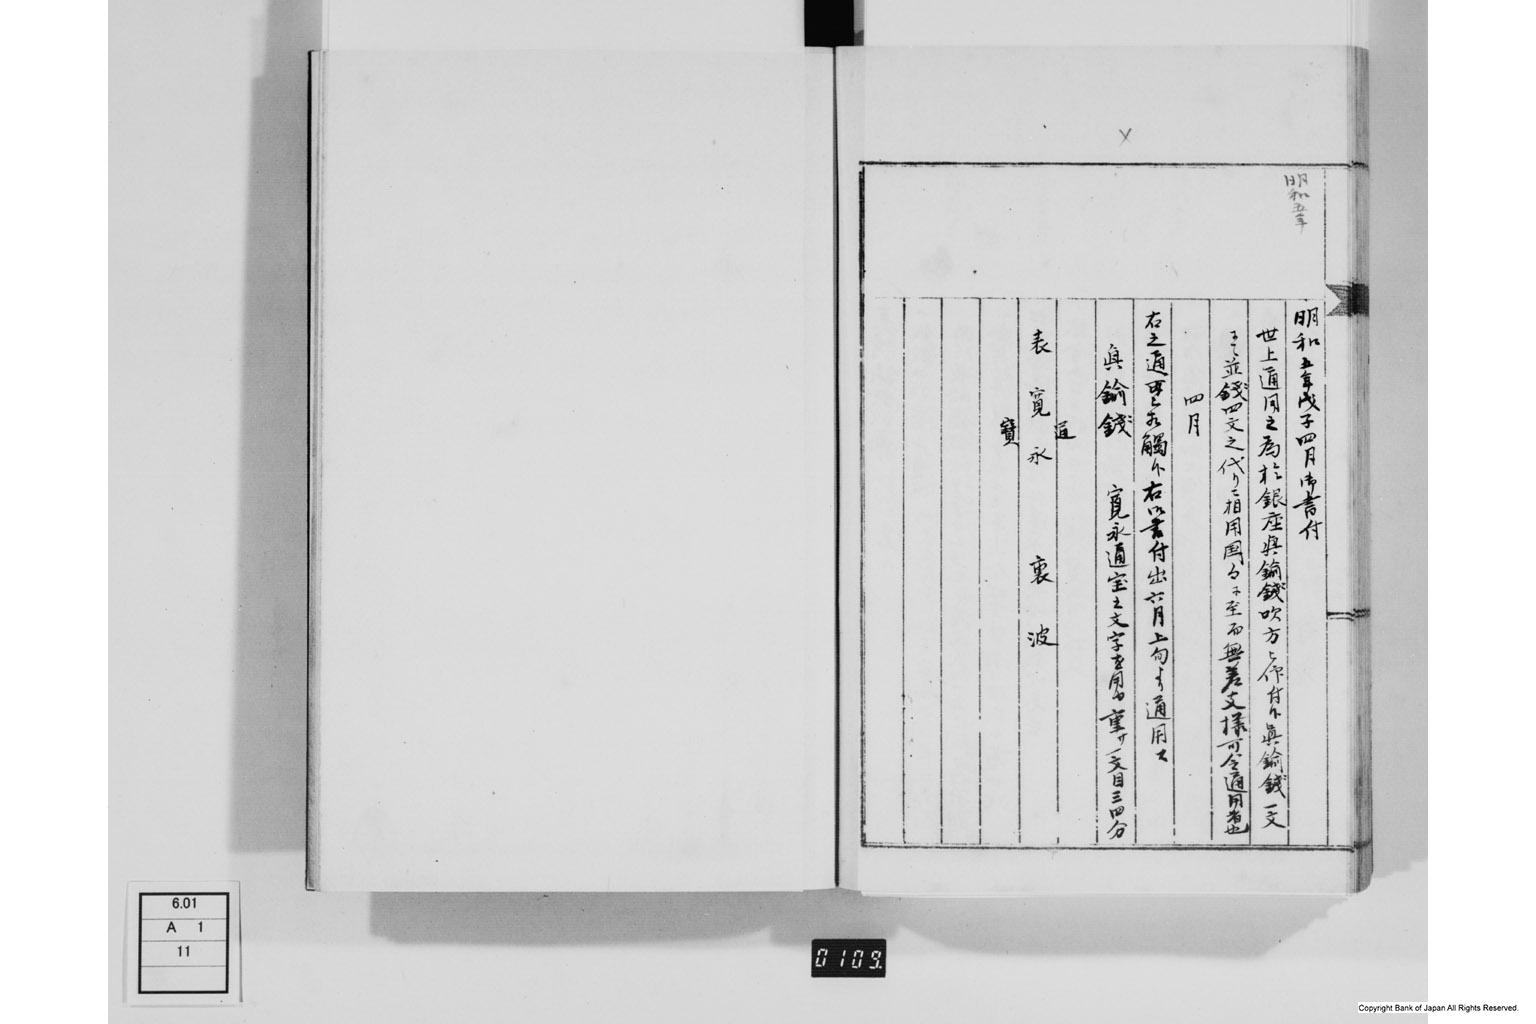 明和五年
明和五年戊子四月御書付
世上通用之為於銀座眞鍮錢吹方被仰付候眞鍮錢一文
ヲ以並錢四文之代りニ相用国々ニ至而無差支様可令通用者也
四月
右之通可被相觸候右御書付出六月上旬より通用ス
眞鍮錢 寛永通宝之文字を用ゆ重サ一文目三四分
表 寛永通寶 裏 波
6.01
A 1
11
0109.
Copyright Bank of Japan All Rights Reserved.